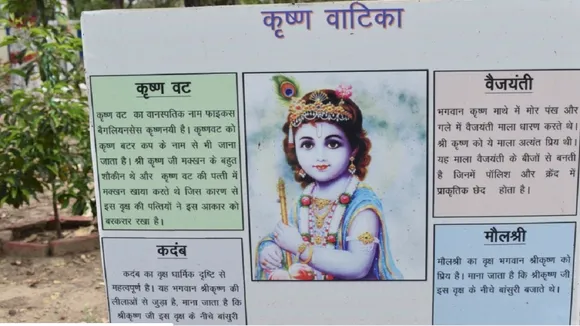 कृष्ण वाटिका
कृष्ण वट
कृष्ण वट का वानस्पतिक नाम फाइकस
बैंगलियनसेंस कृष्णनयी है। कृष्णवट को
कृष्ण बटर कप के नाम से भी जाना
जाता है। श्री कृष्ण जी मक्खन के बहुत
शौकीन थे और कृष्ण वट की पत्ती में
मक्खन खाया करते थे जिस कारण से
इस वृक्ष की पत्तियों ने इस आकार को
बरकरार रखा है।
कदंब
कदंब का वृक्ष धार्मिक दृष्टि से
महत्वपूर्ण है। यह भगवान श्रीकृष्ण की
लीलाओं से जुड़ा है, माना जाता है कि
श्रीकृष्ण जी इस वृक्ष के नीचे बांसुरी
वैजयंती
भगवान कृष्ण माथे में मोर पंख और
गले में वैजयंती माला धारण करते थे।
श्री कृष्ण को ये माला अत्यंत प्रिय थी।
यह माला वैजयंती के बीजों से बनती
है जिनमें पॉलिश और क्रेंद में
प्राकृतिक छेद होता है।
मौलश्री
मौलश्री का वृक्ष भगवान श्रीकृष्ण को
प्रिय है। माना जाता है कि श्रीकृष्ण जी
इस वृक्ष के नीचे बांसुरी बजाते थे।